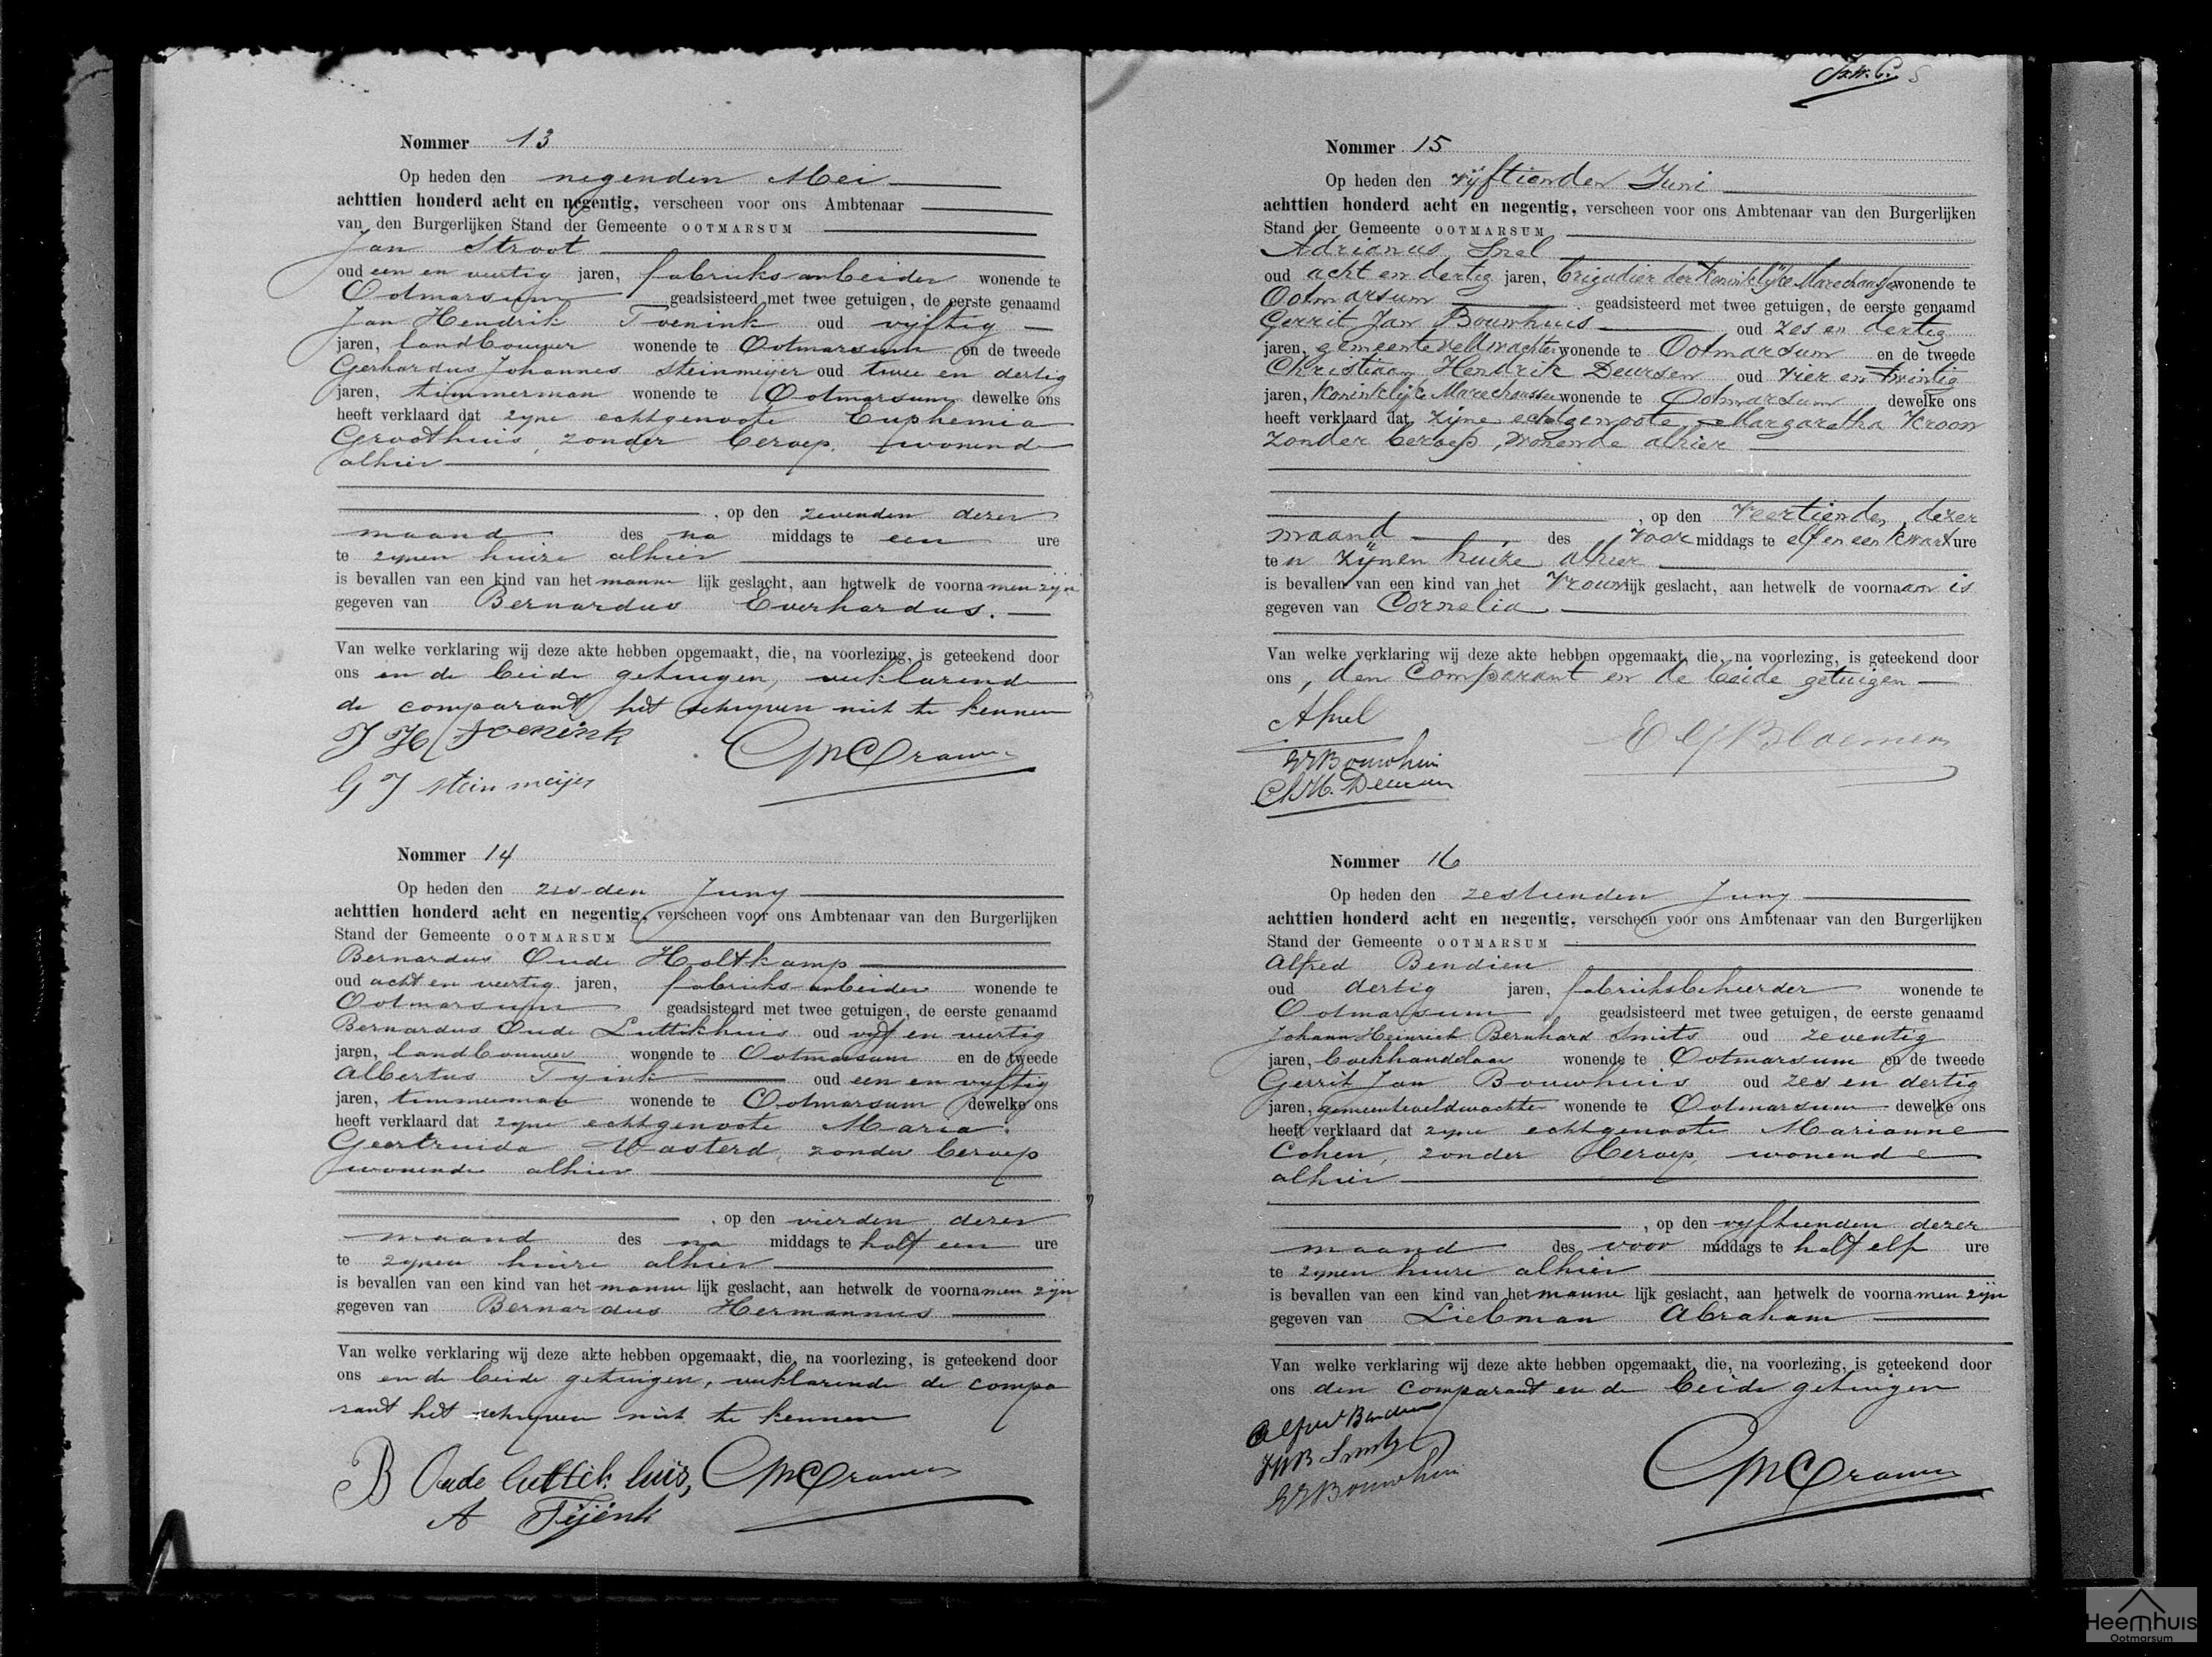 Nommer 13
Op heden den negenden Mei
achttien honderd acht en negentig, verscheen voor ons Ambtenaar
van den Burgerlijken Stand der Gemeente OOTMARSUM
Jan Stroot
oud een en veertig jaren, fabrieksarbeider wonende te
Ootmarsum geadsisteerd met twee getuigen, de eerste genaamd
Jan Hendrik Tvenink oud vijftig
jaren, landbouwer wonende te Ootmarsum en de tweede
Gerhardus Johannes Steinmeijer oud twee en dertig
jaren, timmerman wonende te Ootmarsum dewelke ons
heeft verklaard dat zijne echtgenoote Euphemia
Groothuis, zonder beroep, wonende
alhier
, op den zevenden dezer
maand des na middags te een ure
te zijnen huize alhier
is bevallen van een kind van het manne lijk geslacht, aan hetwelk de voornamen zijn
gegeven van Bernardus Everhardus.
Van welke verklaring wij deze akte hebben opgemaakt, die, na voorlezing, is geteekend door
ons en de beide getuigen, verklarende
de comparant het schrijven niet te kennen
G J Steinmeijer
Nommer 14
Op heden den zesden Juny
achttien honderd acht en negentig, verscheen voor ons Ambtenaar van den Burgerlijken
Stand der Gemeente OOTMARSUM
Bernardus Oude Holtkamp
oud acht en veertig jaren, fabrieksarbeider wonende te
Ootmarsum geadsisteerd met twee getuigen, de eerste genaamd
Bernardus Oude Luttikhuis oud vijf en veertig
jaren, landbouwer wonende te Ootmarsum en de tweede
Albertus Tyink oud een en vyftig
jaren, timmerman wonende te Ootmarsum dewelke ons
heeft verklaard dat zijne echtgenoote Maria
Geertruida Masterd, zonder beroep
wonende alhier
, op den vierden dezer
maand des na middags te half een ure
te zijnen huize alhier
is bevallen van een kind van het manne lijk geslacht, aan hetwelk de voornamen zijn
gegeven van Bernardus Hermannus
Van welke verklaring wij deze akte hebben opgemaakt, die, na voorlezing, is geteekend door
ons en de beide getuigen, verklarende de compa
rant het schrijven niet te kennen
B Oude luttik huis,
A Tijink
Nommer 15
Op heden den vijftienden Juni
achttien honderd acht en negentig, verscheen voor ons Ambtenaar van den Burgerlijken
Stand der Gemeente OOTMARSUM
Adrianus Snel
oud acht en dertig jaren, brigadier der Koninklijke Marechaussee wonende te
Ootmarsum geadsisteerd met twee getuigen, de eerste genaamd
Gerrit Jan Bouwhuis oud zes en dertig
jaren, gemeenteveldwachter wonende te Ootmarsum en de tweede
Christiaan Hendrik Deursen oud vier en twintig
jaren, Koninklijke Marechaussee wonende te Ootmarsum dewelke ons
heeft verklaard dat zijne echtgenoote Margaretha Kroon
zonder beroep, wonende alhier
, op den veertienden dezer
maand des voor middags te elf en een kwart ure
te n zijnen huize alhier
is bevallen van een kind van het vrouwlijk geslacht, aan hetwelk de voornaam is
gegeven van Cornelia
Van welke verklaring wij deze akte hebben opgemaakt, die, na voorlezing, is geteekend door
ons, den Comparant en de beide getuigen
ASnel
GJBouwhuis
Ch.H. Deursen
Nommer 16
Op heden den zestienden Juny
achttien honderd acht en negentig, verscheen voor ons Ambtenaar van den Burgerlijken
Stand der Gemeente OOTMARSUM
Alfred Bendien
oud dertig jaren, fabrieksbeheerder wonende te
Ootmarsum geadsisteerd met twee getuigen, de eerste genaamd
Johann Heinrich Bernhard Smits oud zeventig
jaren, boekhandelaar wonende te Ootmarsum en de tweede
Gerrit Jan Bouwhuis oud zes en dertig
jaren, gemeenteveldwachter wonende te Ootmarsum dewelke ons
heeft verklaard dat zijne echtgenoote Marianne
Cohen, zonder beroep, wonende
alhier
, op den vyftienden dezer
maand des voor middags te half elf ure
te zijnen huize alhier
is bevallen van een kind van het manne lijk geslacht, aan hetwelk de voornamen zijn
gegeven van Liebman Abraham
Van welke verklaring wij deze akte hebben opgemaakt, die, na voorlezing, is geteekend door
ons den comparant en de beide getuigen
Alfred Bendien
JHB Smits
GJBouwhuis
Heemhuis
Ootmarsum